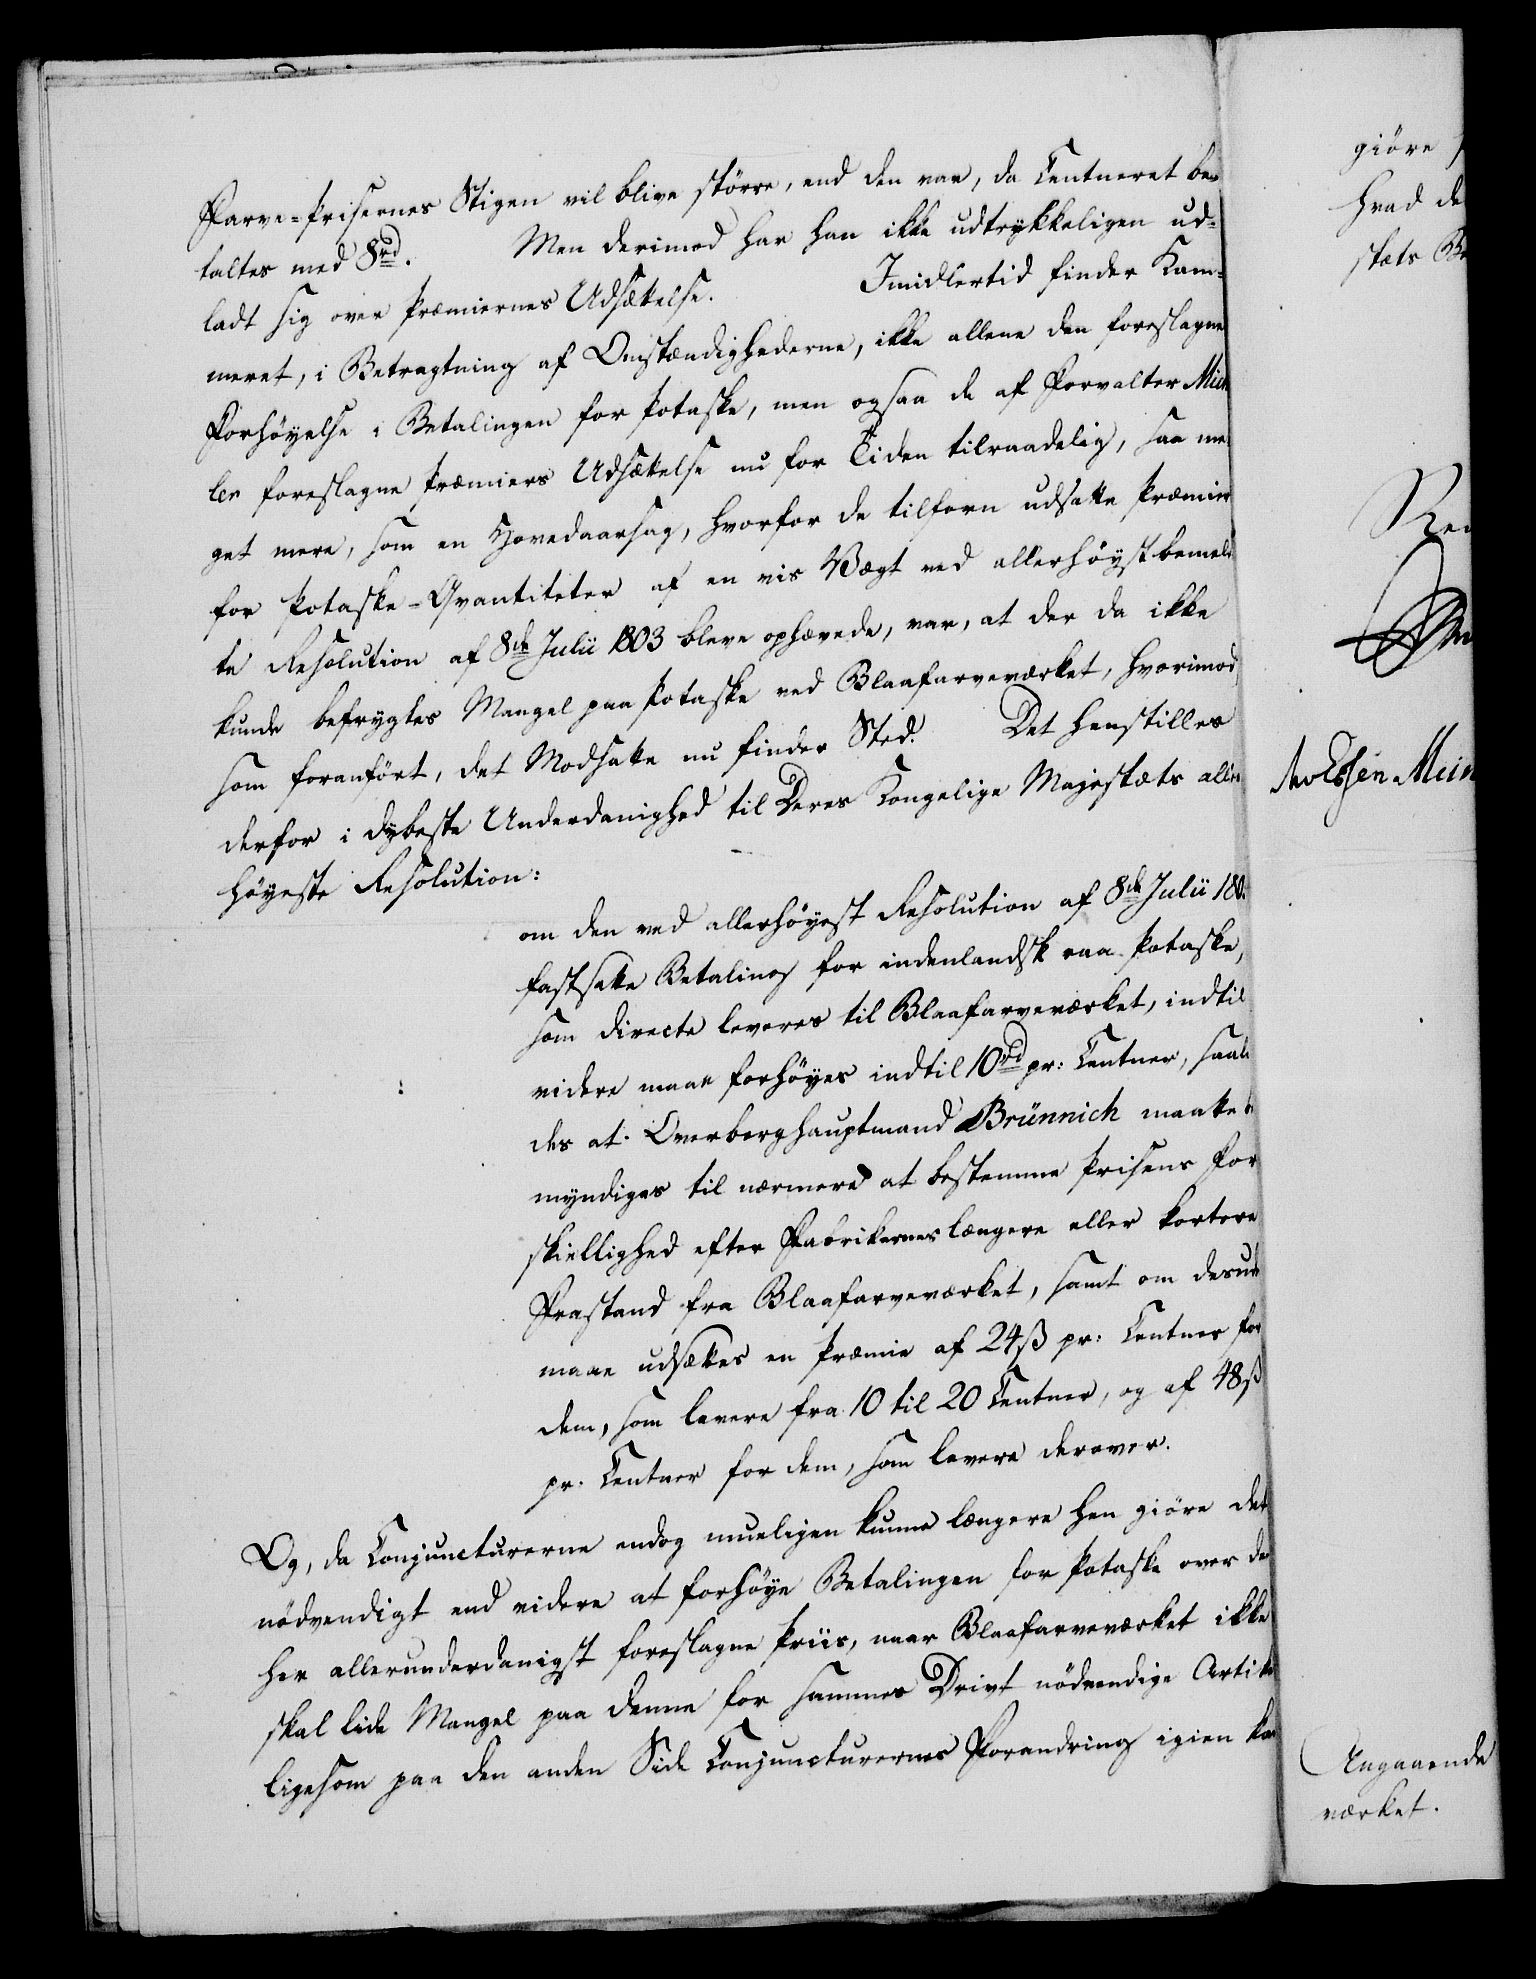 Farve-Prisernes Stigen vil blive större, end den var, da Centneret be-
taltes med 8rd. Men derimod har han ikke udtrykkeligen ud-
ladt sig over Præmiernes Udsættelse. Imidlertid finder Kam-
meret, i Betragtning af Omstændighederne, ikke allene den foreslagne
Forhöyelse i Betalingen for Potaske, men ogsaa de af Forvalter
ler foreslagne Præmiers Udsættelse nu for Tiden tilraadelig, saa me
get mere, som en Hovedaarsag, hvorfor de tilforn udsatte Præmier
for Potaske-Qvantiteter af en vis Vægt ved allerhöystbemeld
te Resolution af 8de Julii 1803 bleve ophævede, var, at der da ikke
kunde befrygtes Mangel paa Potaske ved Blaafarveværket, hvorimod,
som foranfört, det Modsatte nu finder Sted. Det henstilles
derfor i dybeste Underdanighed til Deres Kongelige Majestæts aller
höyeste Resolution:
om den ved allerhöyest Resolution af 8de Julii 180
fastsatte Betaling for indenlandsk raa Potaske,
som directe leveres til Blaafarveværket, indtil
videre maae forhöyes indtil 10rd pr: Centner, saale
des at Overberghauptmand Brünnich maatte be
myndiges til nærmere at bestemme Prisens For
skiellighed efter Fabrikernes længere eller kortere
Frastand fra Blaafarveværket, samt om desud
maae udsættes en Præmie af 24ß pr: Centner for
dem, som levere fra 10 til 20 Centner, og af 48ß
pr. Centner for dem, som levere derover.
Og, da Conjuncturerne endog mueligen kunne længere hen giöre det
nödvendigt end videre at forhöye Betalingen for Potaske over den
her allerunderdanigst foreslagne Priis, naar Blaafarveværket ikke
skal lide Mangel paa denne for sammes Drivt nödvendige Artikel
ligesom paa den anden Side Conjuncturernes Forandring igien kan
giöre
hvad de
stæts
Angaaende
værket.